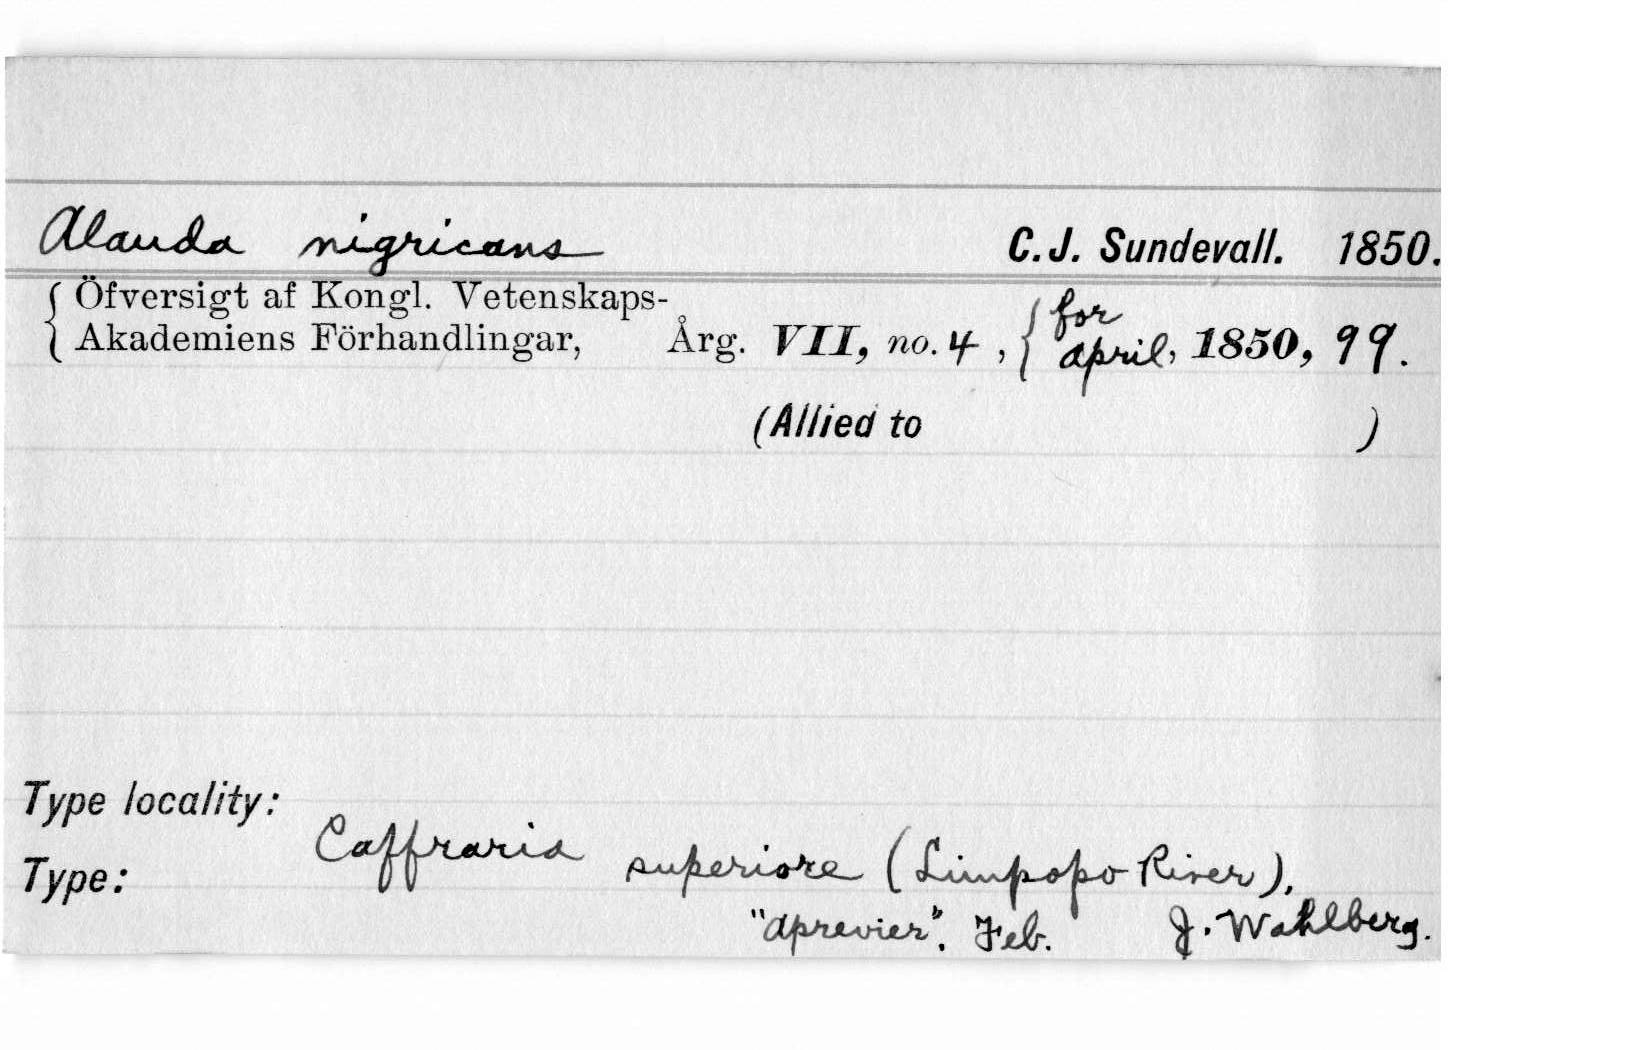 Alauda nigricans C. J. Sundevall. 1850.
Öfversigt af Kongl. Vetenskaps-
Akademiens Förhandlingar, Årg. VII, no. 4, for April, 1850, 99.
(Allied to )
Type locality:
Caffraria superiore (Limpopo River),
Type:
"Aprevier". Feb. J. Wahlberg.